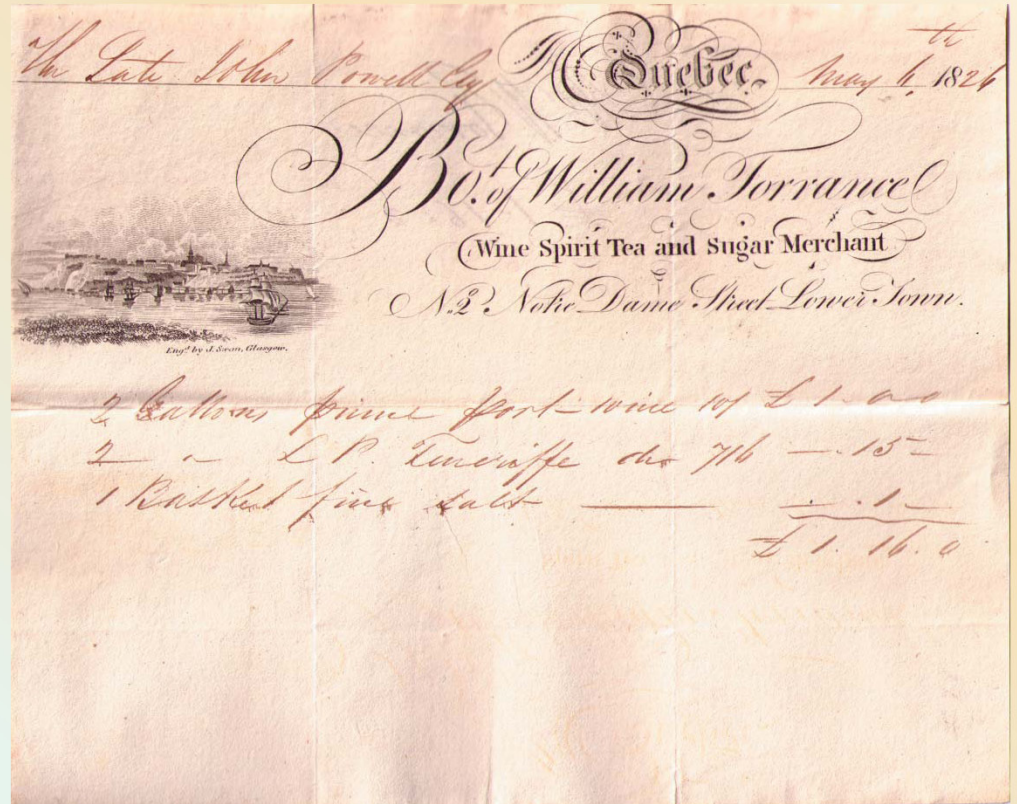 The Late John Powell Esq Quebec, May 6th 1826
Bot. of William Torrance
Wine Spirit Tea and Sugar Merchant
No. 2 Notre Dame Street Lower Town.
Engd. by J. Swan, Glasgow.
2 Gallons prime port wine 10/ £ 1. 0 0
2 " L P. Teneriffe do 7/6 — . 15 -
1 Basket fine salt — . . 1 -
£ 1. 16. 0